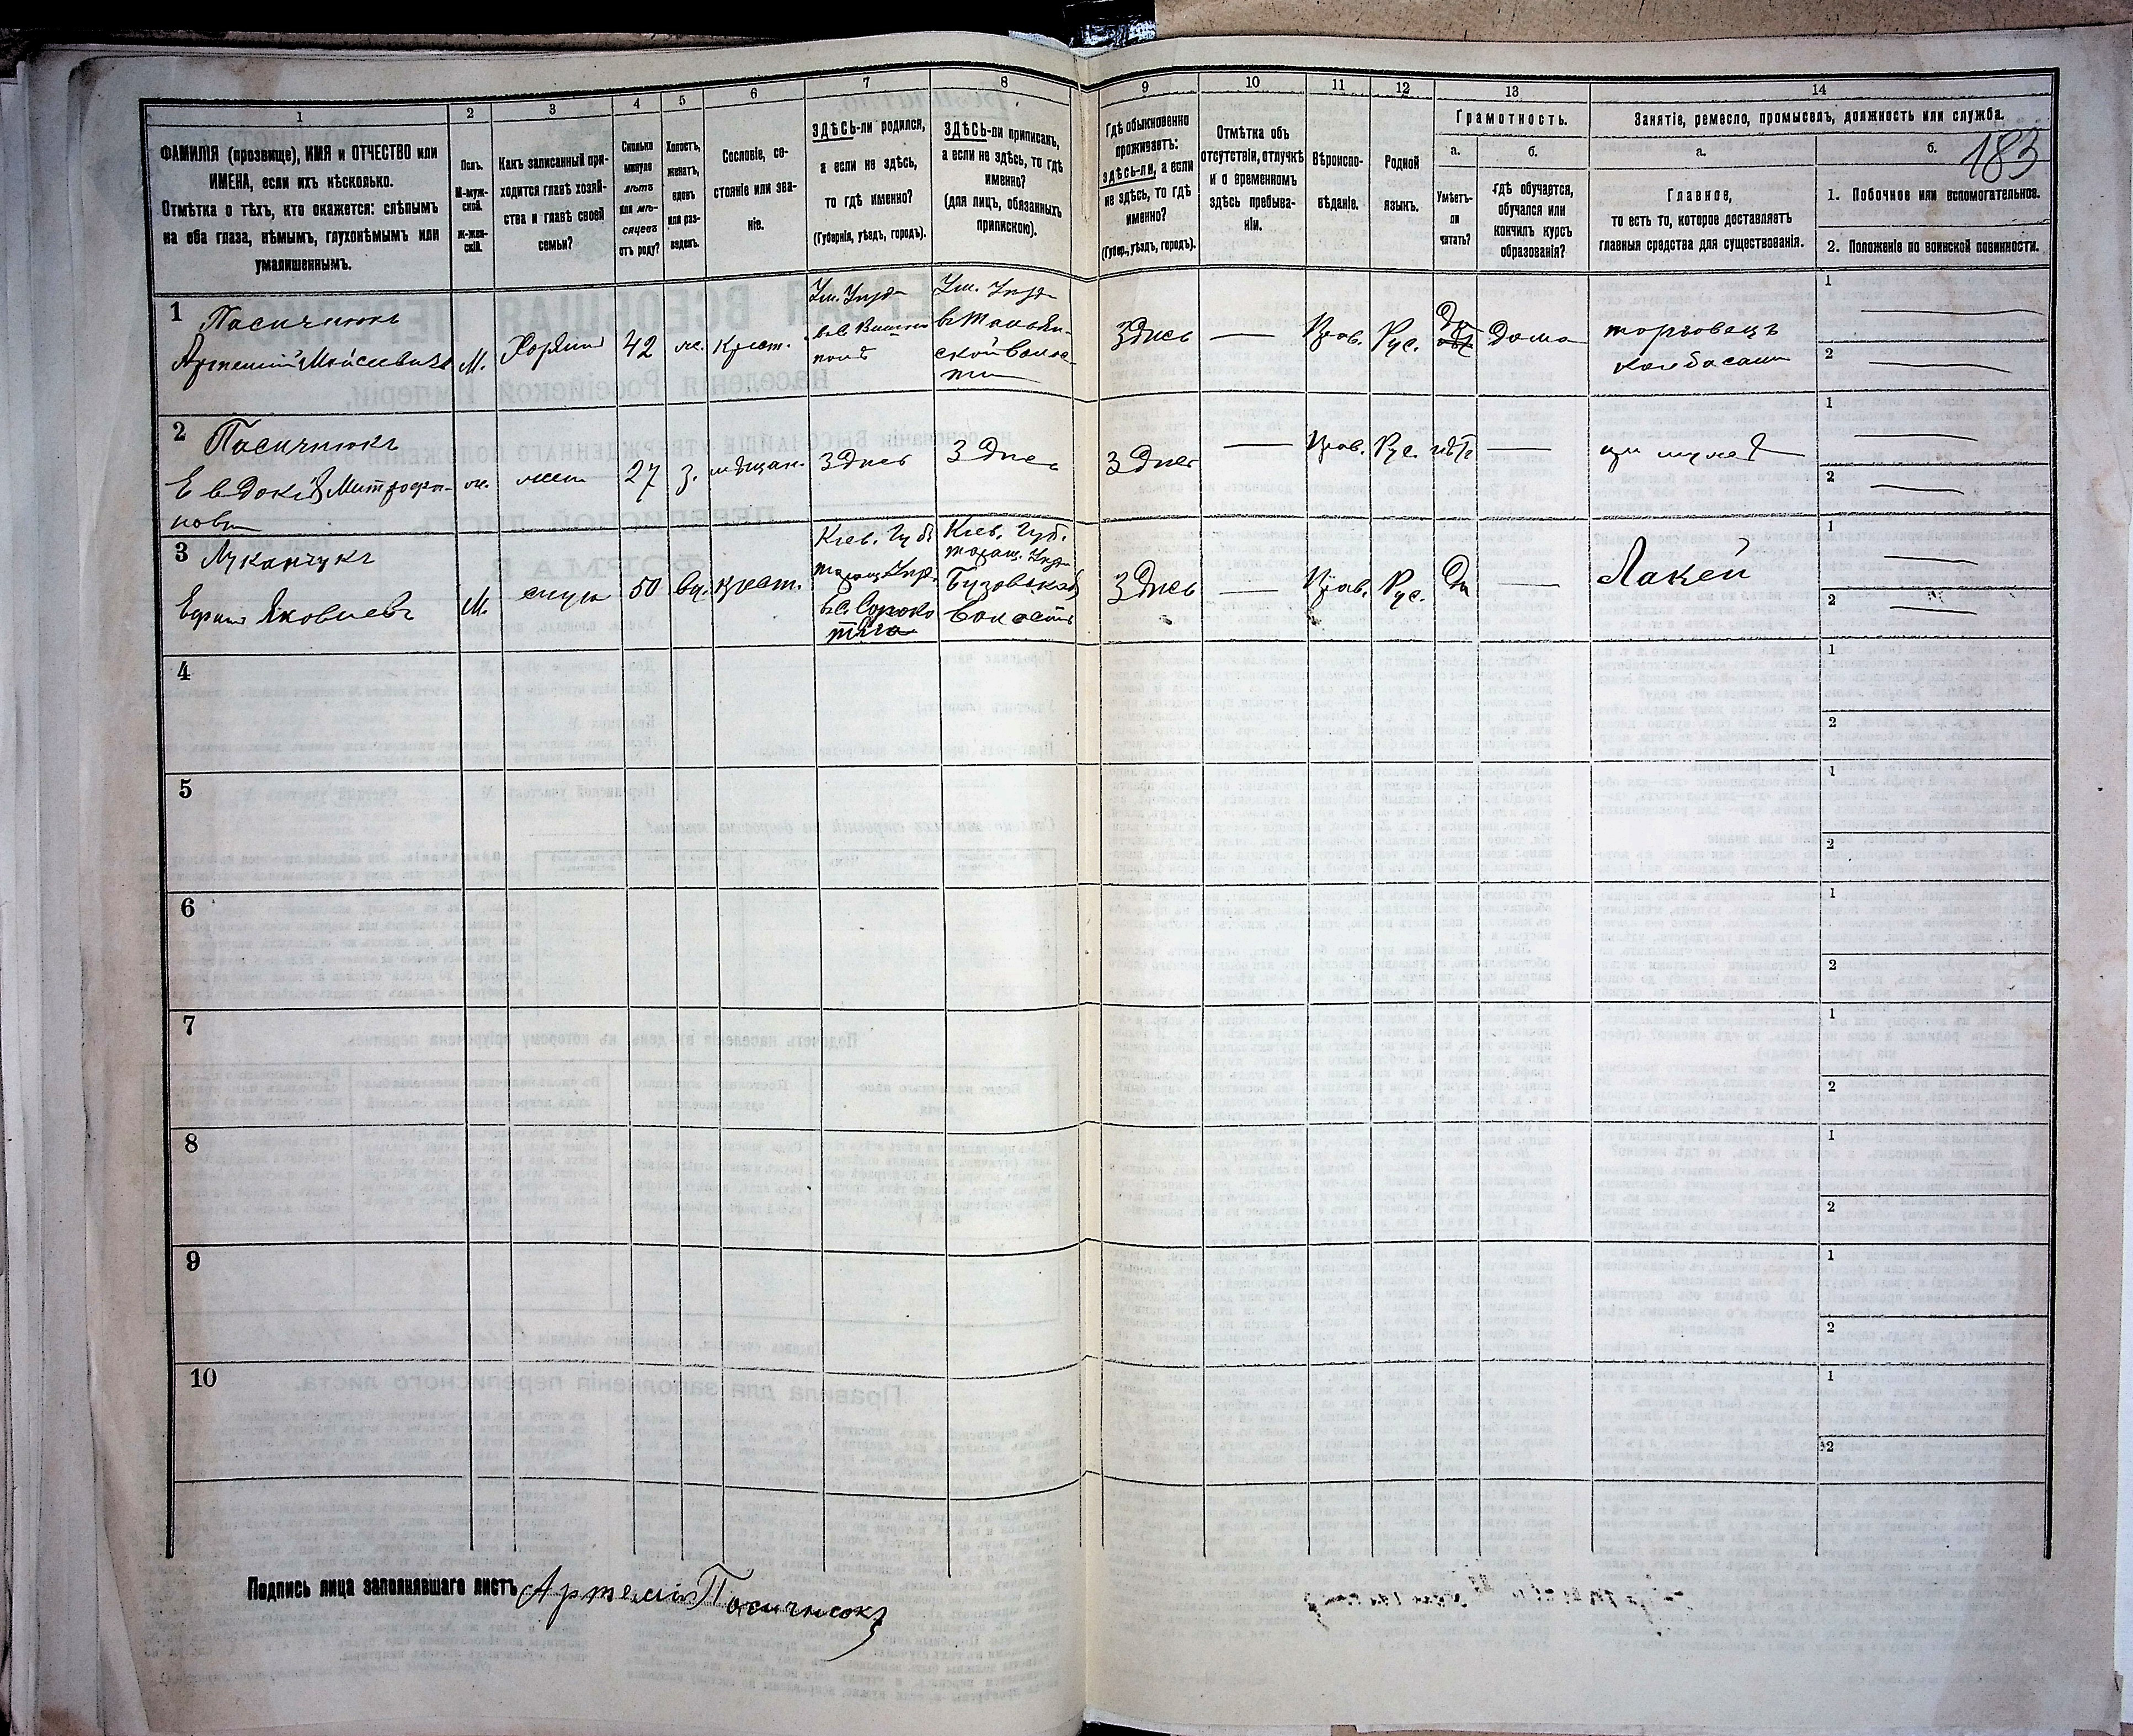 1 2 3 4 5 6 7 8 9 10 11 12 13 14
183
ФАМИЛІЯ (прозвище), ИМЯ и ОТЧЕСТВО или
ИМЕНА, если ихъ нѣсколько.
Отмѣтка о тѣхъ, кто окажется: слѣпымъ
на оба глаза, нѣмымъ, глухонѣмымъ или
умалишеннымъ.
Полъ.
М-муж-
ской.
Ж-жен-
скій.
Какъ записанный при-
ходится главѣ хозяй-
ства и главѣ своей
семьи?
Сколько
минуло
лѣтъ
или мѣ-
сяцевъ
отъ роду?
Холостъ,
женатъ,
вдовъ
или раз-
веденъ.
Сословіе, со-
стояніе или зва-
ніе.
ЗДѢСЬ-ли родился,
а если не здѣсь,
то гдѣ именно?
(Губернія, уѣздъ, городъ).
ЗДѢСЬ-ли приписанъ,
а если не здѣсь, то гдѣ
именно?
(для лицъ, обязанныхъ
припискою).
Гдѣ обыкновенно
проживаетъ:
здѣсь-ли, а если
не здѣсь, то гдѣ
именно?
(Губер., уѣздъ, городъ).
Отмѣтка объ
отсутствіи, отлучкѣ
и о временномъ
здѣсь пребыва-
ніи.
Вѣроиспо-
вѣданіе.
Родной
языкъ.
Грамотность.
а.
Умѣетъ-
ли
читать?
б.
гдѣ обучается,
обучался или
кончилъ курсъ
образованія?
Занятіе, ремесло, промыселъ, должность или служба.
а.
Главное,
то есть то, которое доставляетъ
главныя средства для существованія.
б.
1. Побочное или вспомогательное.
2. Положеніе по воинской повинности.
1
Пасичнюкъ
Артемій Мойсеевичъ
М.
Хозяинъ
42
ж.
Крест.
Ум. Уѣзда
Ум. Уѣзда
ской Волос-
ти
Здѣсь
Прав.
Рус.
Да
Дома
торговецъ
колбасами
1
2
2
Пасичнюкъ
Евдокія Митрофа-
новна
ж.
жена
27
з.
мѣщан.
Здѣсь
Здѣсь
Здѣсь
Прав.
Рус.
нѣтъ
при мужѣ
1
2
3
Луканчукъ
Ефимъ Яковлевъ
М.
слуга
50
вд.
крест.
Кіев. Губ.
Таращ. Уѣзд.
въ с. Сороко
тяга
Кіев. Губ.
Таращ. Уѣзда
Бузовской
Волости
Здѣсь
Прав.
Рус.
Да
Лакей
1
2
4
1
2
5
1
2
6
1
2
7
1
2
8
1
2
9
1
2
10
1
2
Подпись лица заполнявшаго листъ Артемій Пасичнюкъ